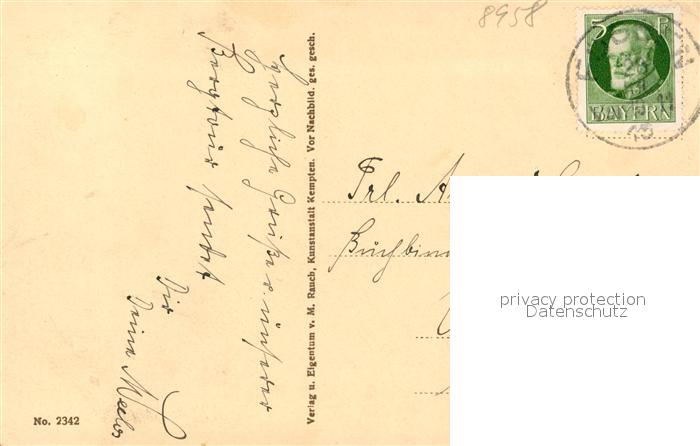 8958
5 Pf
BAYERN
Herzliche Grüße unserer
Bergtour sendet
Dir
Deine
Verlag u. Eigentum v. M. Rauch, Kunstanstalt Kempten. Vor Nachbild. ges. gesch.
Frl.
privacy protection
Datenschutz
No. 2342